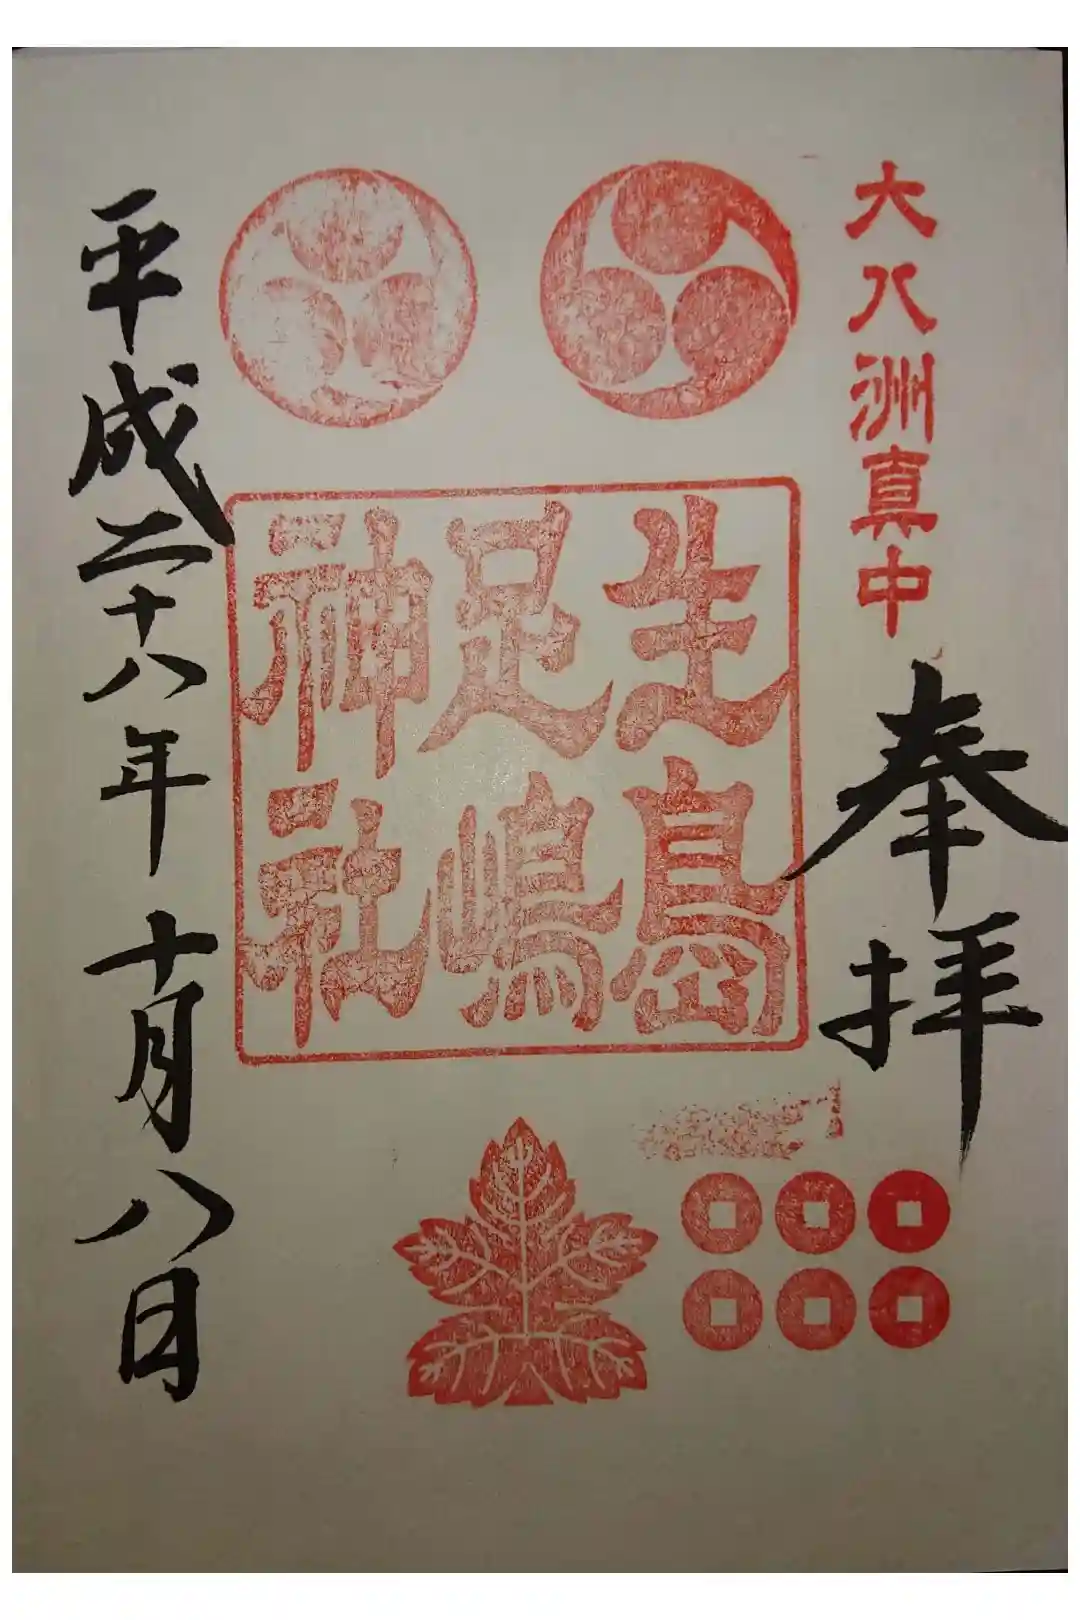 大八洲真中
奉拝
生島
足嶋
神社
平成二十八年 十月八日